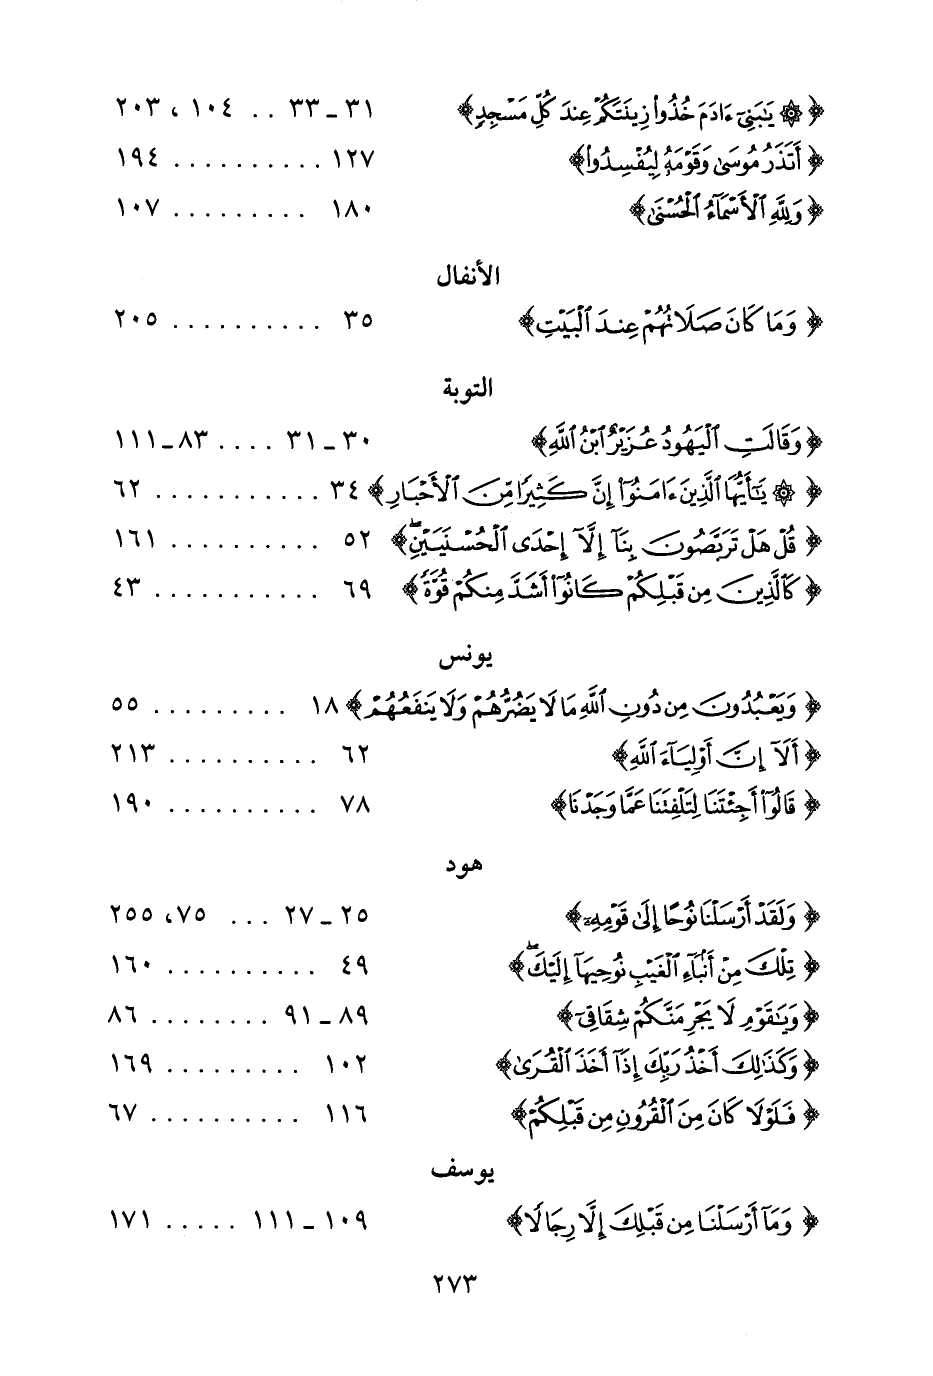 ﴿ ۞ يَٰبَنِيٓ ءَادَمَ خُذُوا۟ زِينَتَكُمْ عِندَ كُلِّ مَسْجِدٍ ﴾ ٣١ ـ ٣٣ .. ١٠٤ ، ٢٠٣
﴿ أَتَذَرُ مُوسَىٰ وَقَوْمَهُۥ لِيُفْسِدُوا۟ ﴾ ١٢٧ .......... ١٩٤
﴿ وَلِلَّهِ ٱلْأَسْمَآءُ ٱلْحُسْنَىٰ ﴾ ١٨٠ ......... ١٠٧
الأنفال
﴿ وَمَا كَانَ صَلَاتُهُمْ عِندَ ٱلْبَيْتِ ﴾ ٣٥ .......... ٢٠٥
التوبة
﴿ وَقَالَتِ ٱلْيَهُودُ عُزَيْرٌ ٱبْنُ ٱللَّهِ ﴾ ٣٠ ـ ٣١ .... ٨٣ ـ ١١١
﴿ ۞ يَٰٓأَيُّهَا ٱلَّذِينَ ءَامَنُوٓا۟ إِنَّ كَثِيرًا مِّنَ ٱلْأَحْبَارِ ﴾ ٣٤ ........... ٦٢
﴿ قُلْ هَلْ تَرَبَّصُونَ بِنَآ إِلَّآ إِحْدَى ٱلْحُسْنَيَيْنِۖ ﴾ ٥٢ .......... ١٦١
﴿ كَٱلَّذِينَ مِن قَبْلِكُمْ كَانُوٓا۟ أَشَدَّ مِنكُمْ قُوَّةً ﴾ ٦٩ ........... ٤٣
يونس
﴿ وَيَعْبُدُونَ مِن دُونِ ٱللَّهِ مَا لَا يَضُرُّهُمْ وَلَا يَنفَعُهُمْ ﴾ ١٨ ......... ٥٥
﴿ أَلَآ إِنَّ أَوْلِيَآءَ ٱللَّهِ ﴾ ٦٢ .......... ٢١٣
﴿ قَالُوٓا۟ أَجِئْتَنَا لِتَلْفِتَنَا عَمَّا وَجَدْنَا ﴾ ٧٨ .......... ١٩٠
هود
﴿ وَلَقَدْ أَرْسَلْنَا نُوحًا إِلَىٰ قَوْمِهِۦٓ ﴾ ٢٥ ـ ٢٧ ... ٧٥، ٢٥٥
﴿ تِلْكَ مِنْ أَنۢبَآءِ ٱلْغَيْبِ نُوحِيهَآ إِلَيْكَۖ ﴾ ٤٩ .......... ١٦٠
﴿ وَيَٰقَوْمِ لَا يَجْرِمَنَّكُمْ شِقَاقِيٓ ﴾ ٨٩ ـ ٩١ ........ ٨٦
﴿ وَكَذَٰلِكَ أَخْذُ رَبِّكَ إِذَآ أَخَذَ ٱلْقُرَىٰ ﴾ ١٠٢ ......... ١٦٩
﴿ فَلَوْلَا كَانَ مِنَ ٱلْقُرُونِ مِن قَبْلِكُمْ ﴾ ١١٦ .......... ٦٧
يوسف
﴿ وَمَآ أَرْسَلْنَا مِن قَبْلِكَ إِلَّا رِجَالًا ﴾ ١٠٩ ـ ١١١ ..... ١٧١
٢٧٣